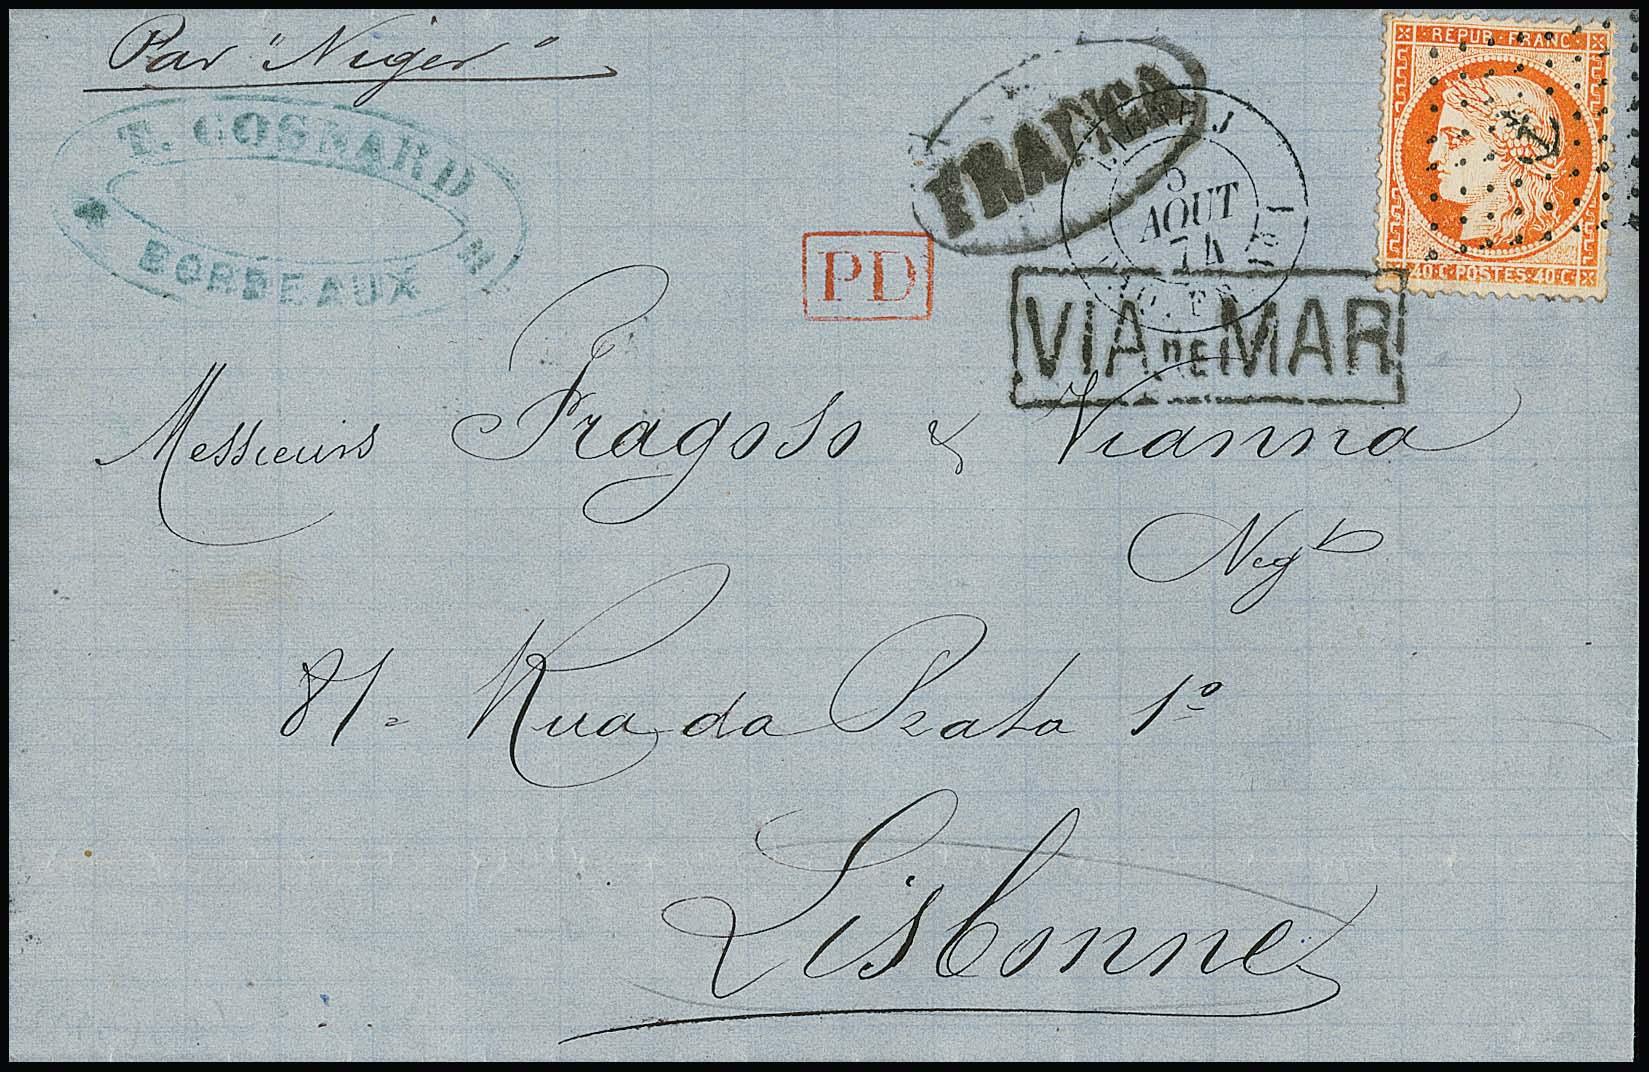 Par "Niger"
T. COSNARD
BORDEAUX
FRANCA
PD
5
AOUT
74
VIA DE MAR
REPUB·FRANC
40·C·POSTES·40·C
Messieurs Fragoso & Vianna
Negts
81- Rua da Prata 1º
Lisbonne